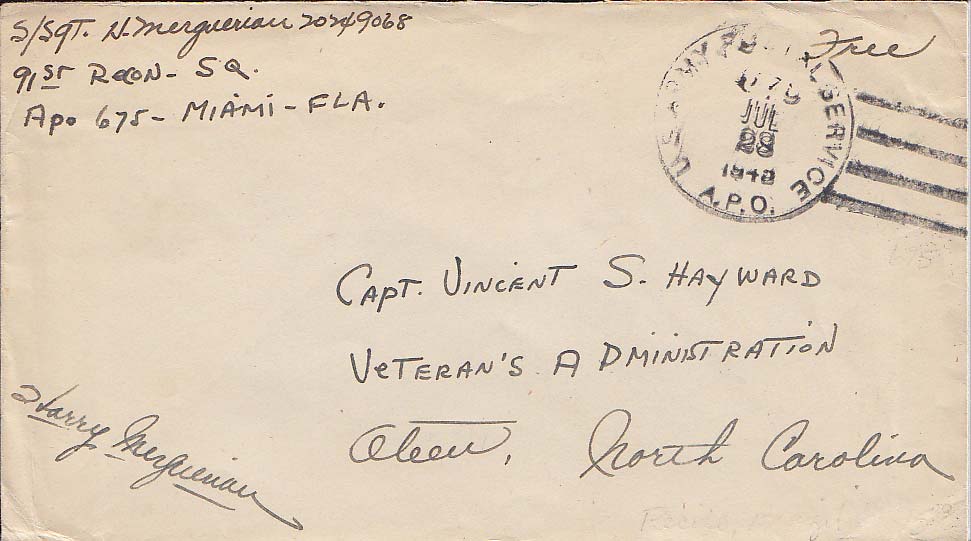 S/Sgt. H. Merguerian 20249068
91st Recon - SQ.
APO 675 - MIAMI - FLA.
Free
U.S. ARMY POSTAL SERVICE
A.P.O.
JUL
28
CAPT. VINCENT S. HAYWARD
VETERAN'S ADMINISTRATION
Oteen, North Carolina
Harry Merguerian